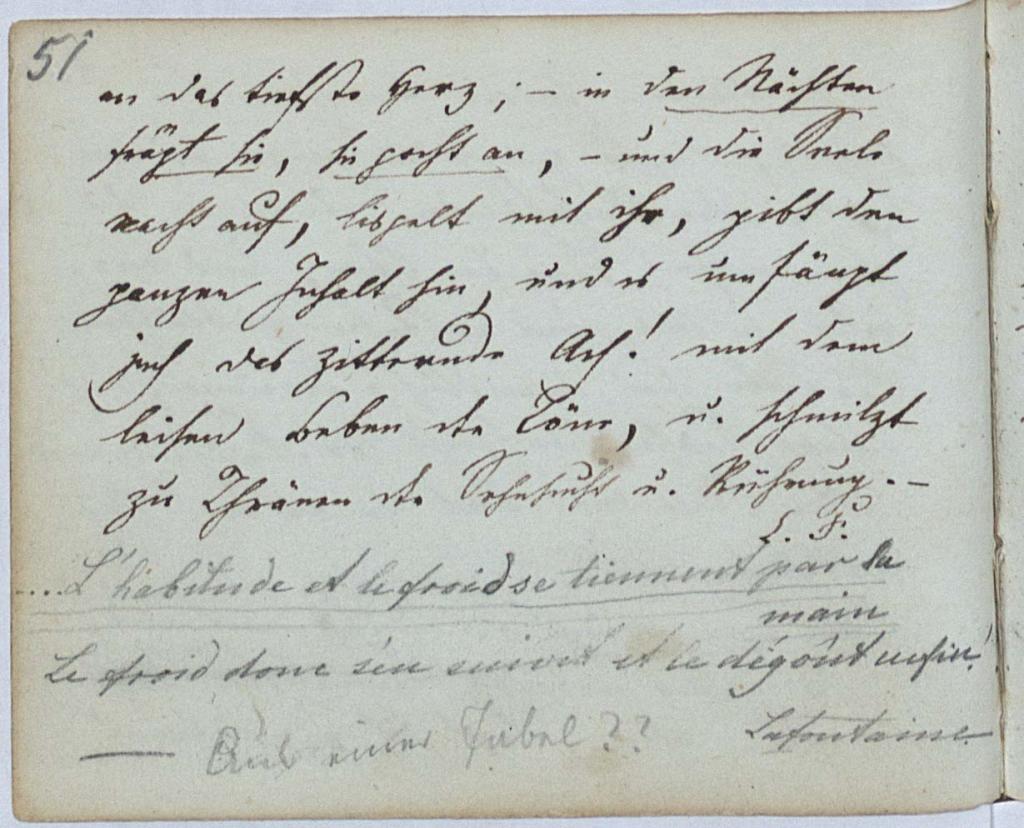 51
an das tiefste Herz; – in den Nächten
frägt sie, sie pocht an, – und die Seele
macht auf, lispelt mit ihr, gibt den
ganzen Inhalt hin, und es umfängt
sich das zitternde Ach! mit dem
leisen Beben der Töne, u. schmilzt
zu Thränen der Sehnsucht u. Rührung. –
L. F.
....L'habitude et le froid se tiennent par la
main
Le froid donc s'en suivit et le dégoût enfin!
Lafontaine
— Aus einer Fabel??